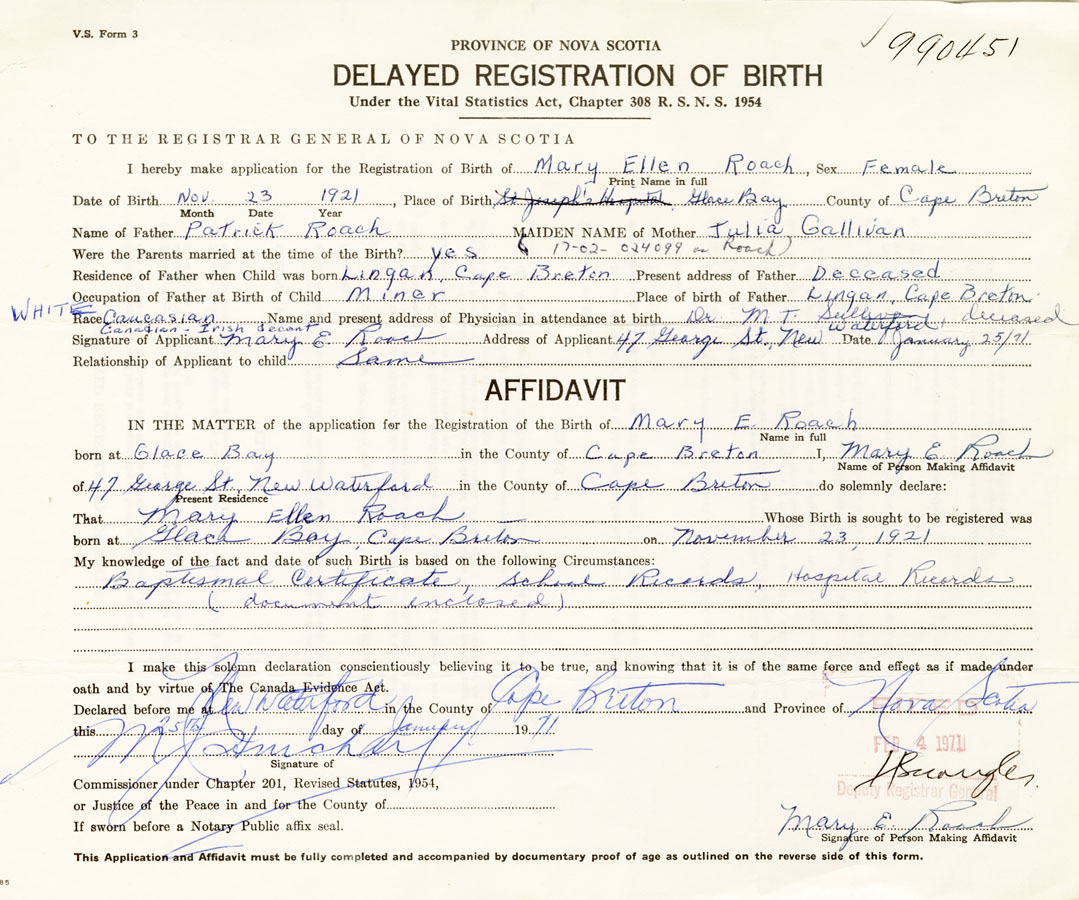 V.S. Form 3
990451
PROVINCE OF NOVA SCOTIA
DELAYED REGISTRATION OF BIRTH
Under the Vital Statistics Act, Chapter 308 R. S. N. S. 1954
TO THE REGISTRAR GENERAL OF NOVA SCOTIA
I hereby make application for the Registration of Birth of Mary Ellen Roach, Sex Female
Print Name in full
Date of Birth Nov. 23 1921, Place of Birth St Joseph's Hospital, Glace Bay County of Cape Breton
Month Date Year
Name of Father Patrick Roach MAIDEN NAME of Mother Julia Gallivan
Were the Parents married at the time of the Birth? yes 17-02-024099 as Roach)
Residence of Father when Child was born Lingan, Cape Breton Present address of Father Deceased
Occupation of Father at Birth of Child Miner Place of birth of Father Lingan, Cape Breton
WHITE Race Caucasian Name and present address of Physician in attendance at birth Dr. M. T. Sullivan, deceased
Canadian - Irish decent Waterford,
Signature of Applicant Mary E. Roach Address of Applicant 47 George St., New Date January 25/71.
Relationship of Applicant to child Same
AFFIDAVIT
IN THE MATTER of the application for the Registration of the Birth of Mary E. Roach
Name in full
born at Glace Bay in the County of Cape Breton I, Mary E. Roach
Name of Person Making Affidavit
of 47 George St., New Waterford in the County of Cape Breton do solemnly declare:
Present Residence
That Mary Ellen Roach Whose Birth is sought to be registered was
born at Glace Bay, Cape Breton on November 23, 1921
My knowledge of the fact and date of such Birth is based on the following Circumstances:
Baptismal Certificate, School Records, Hospital Records
(document enclosed)
I make this solemn declaration conscientiously believing it to be true, and knowing that it is of the same force and effect as if made under
oath and by virtue of The Canada Evidence Act.
Declared before me at New Waterford in the County of Cape Breton and Province of Nova Scotia
this 25th day of January 1971
FEB 4 1971
Signature of
Commissioner under Chapter 201, Revised Statutes, 1954,
Deputy Registrar General
or Justice of the Peace in and for the County of
If sworn before a Notary Public affix seal.
Mary E. Roach
Signature of Person Making Affidavit
This Application and Affidavit must be fully completed and accompanied by documentary proof of age as outlined on the reverse side of this form.
85